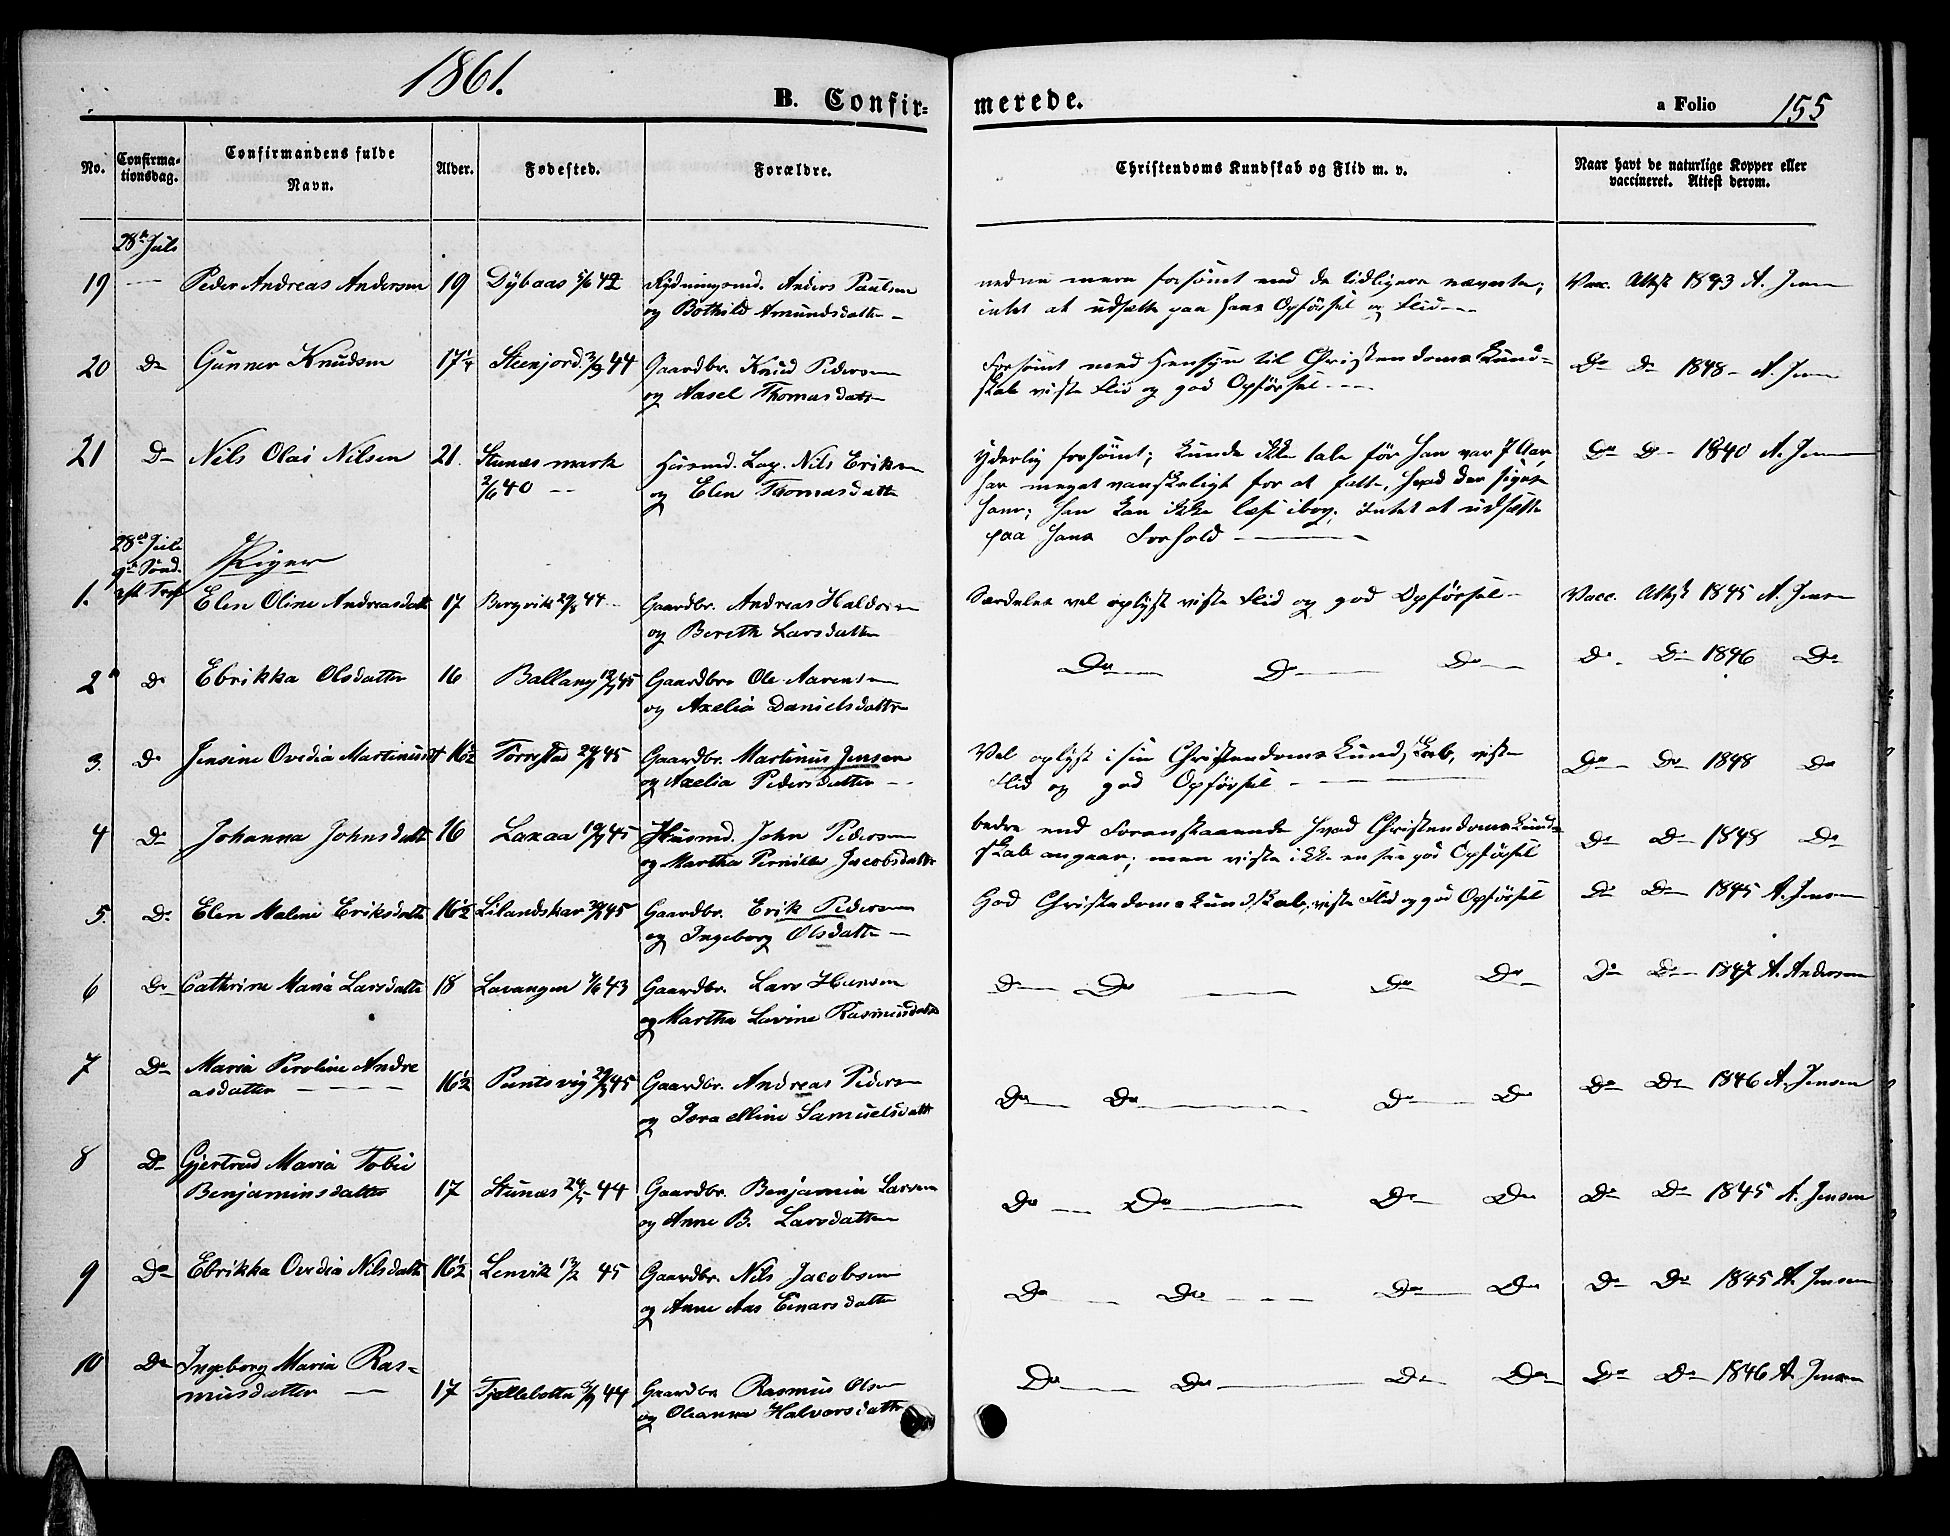 1861.
B. Confir=
merede.
a Folio 155
No.
Confirma-
tionsdag.
Confirmandens fulde
Navn.
Alder.
Fødested.
Forældre.
Christendoms Kundskab og Flid m. v.
Naar havt de naturlige Kopper eller
vaccineret. Attest derom.
28de Juli
19 Peder Andreas Andersen 19 Dybaas 5/6 42 Rydningsmd. Anders Paulsen
og Bothild Amundsdatter
endnu mere forsømt end de tidligere nævnte;
intet at udsætte paa hans Opførsel og Flid
Vac. Attest 1843 A. Jensen
20 Do Gunner Knudsen 17¼ Steenjord 44 Gaardbr. Knud Pedersen
og Aasel Thomasdatr
Forsømt med Hensyn til Christendoms Kund=
skab viste Flid og god Opførsel
Do Do 1848 A. Jensen
21 Do Nils Olai Nilsen 21. Stunæs mark Huusmd. Lap. Nils Eriksen
2/6 40 og Elen Thomasdatter
Yderlig forsømt; kunde ikke tale før han var 7 Aar,
har meget vanskeligt for at fatte, hvad der siges
ham; han kan ikke læse i bog; intet at udsætte
paa hans Forhold
Do Do 1840 A. Jensen
28de Juli
9de Sønd.
eft. Tref
Piger
1. Elen Oline Andreasdatt 17 Bergvik 44 Gaardbr. Andreas Haldorsen
og Bereth Larsdatter
Særdeles vel oplyst viste Flid og god Opførsel
Vacc. Attest 1845 A. Jensen
2 Do Ebrikka Olsdatter 16 Ballang 45 Gaardbr. Ole Aarentsen
og Axelia Danielsdatter
Do Do Do
Do Do 1846 Do
3. Do Jensine Ovedia Martinusdt 16½ Forrestad 45 Gaardbr. Martinus Jensen
og Axelia Pedersdatter
Vel oplyst i sin Christendoms Kundskab, viste
Flid og god Opførsel
Do Do 1848 Do
4 Do Johanna Johnsdatt 16 Laxaa 45 Huusmd. John Pedersen
og Martha Pernille Jacobsdatter
bedre end Foranstaaende hvad Christendoms Kund=
skab angaar; men viste ikke en saa god Opførsel
Do Do 1848 Do
5. Do Elen Maline Eriksdatt 16½ Lilandskar 45 Gaardbr. Erik Pedersen
og Ingeborg Olsdatter
God Christendoms Kundskab, viste Flid og god Opførsel
Do Do 1845 A. Jensen
6 Do Cathrine Maria Larsdatte 18 Lavangen 43 Gaardbr. Lars Hansen
og Martha Lovine Rasmusdatter
Do Do Do Do
Do Do 1847 A. Andersen
7 Do Maria Peroline Andre
asdatter 16½ Puntsvig 45 Gaardbr. Andreas Pedersen
og Israelline Samuelsdatt
Do Do Do Do
Do Do 1846 A. Jensen
8 Do Gjertrud Maria Tobie
Benjaminsdatter 17 Stunæs 24/5 44 Gaardbr. Benjamin Larsen
og Anne B. Larsdatter
Do Do Do Do
Do Do 1845 A. Jensen
9 Do Ebrikka Ovedia Nilsdatte 16½ Lenvik 13/2 45 Gaardbr. Nils Jacobsen
og Anne Aas Einarsdatter
Do Do Do Do
Do Do 1845 A. Jensen
10 Do Ingeborg Maria Ras-
musdatter 17 Fjellebotten 44 Gaardbr Rasmus Olsen
og Oleanna Halvorsdatter
Do Do Do Do
Do Do 1846 A. Jensen